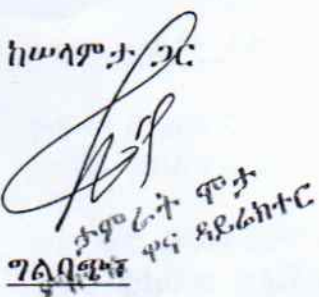 ከሠላምታ ጋር
ታምራት ሞታ
ዋና ዳይሬክተር
ግልባጭ፡